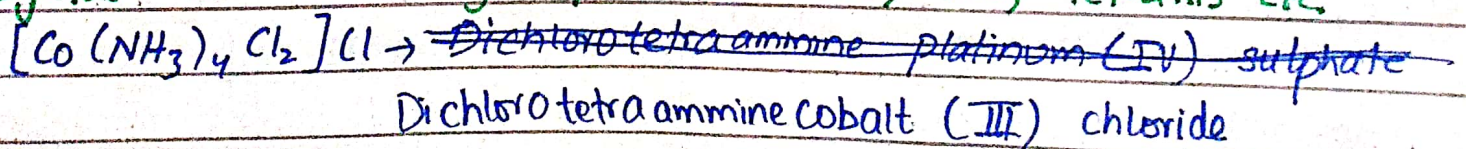 [Co(NH₃)₄Cl₂]Cl → Dichloro tetra ammine platinum (IV) sulphate
Dichloro tetra ammine cobalt (III) chloride